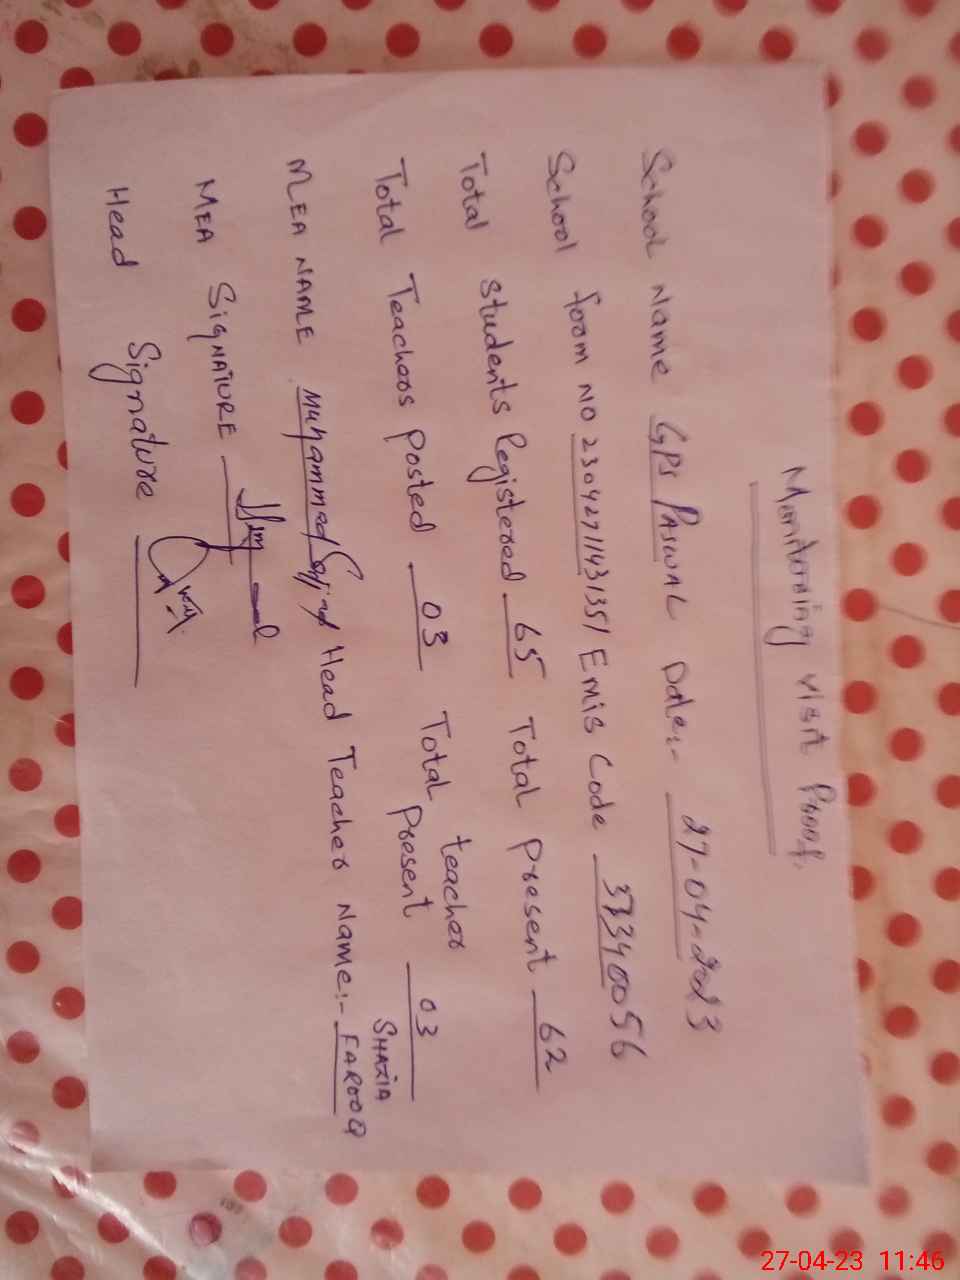 Monitoring visit Proof.
School Name GPS PASWAL Date:- 27-04-2023
School form NO 23042711431351 Emis Code 37340056
Total students Registered 65 Total present 62
Total Teachers posted 03 Total teacher present 03
MEA NAME Muhammad Sajjad Head Teacher Name:- SHAZIA FAROOQ
MEA SIGNATURE
Head Signature
27-04-23 11:46